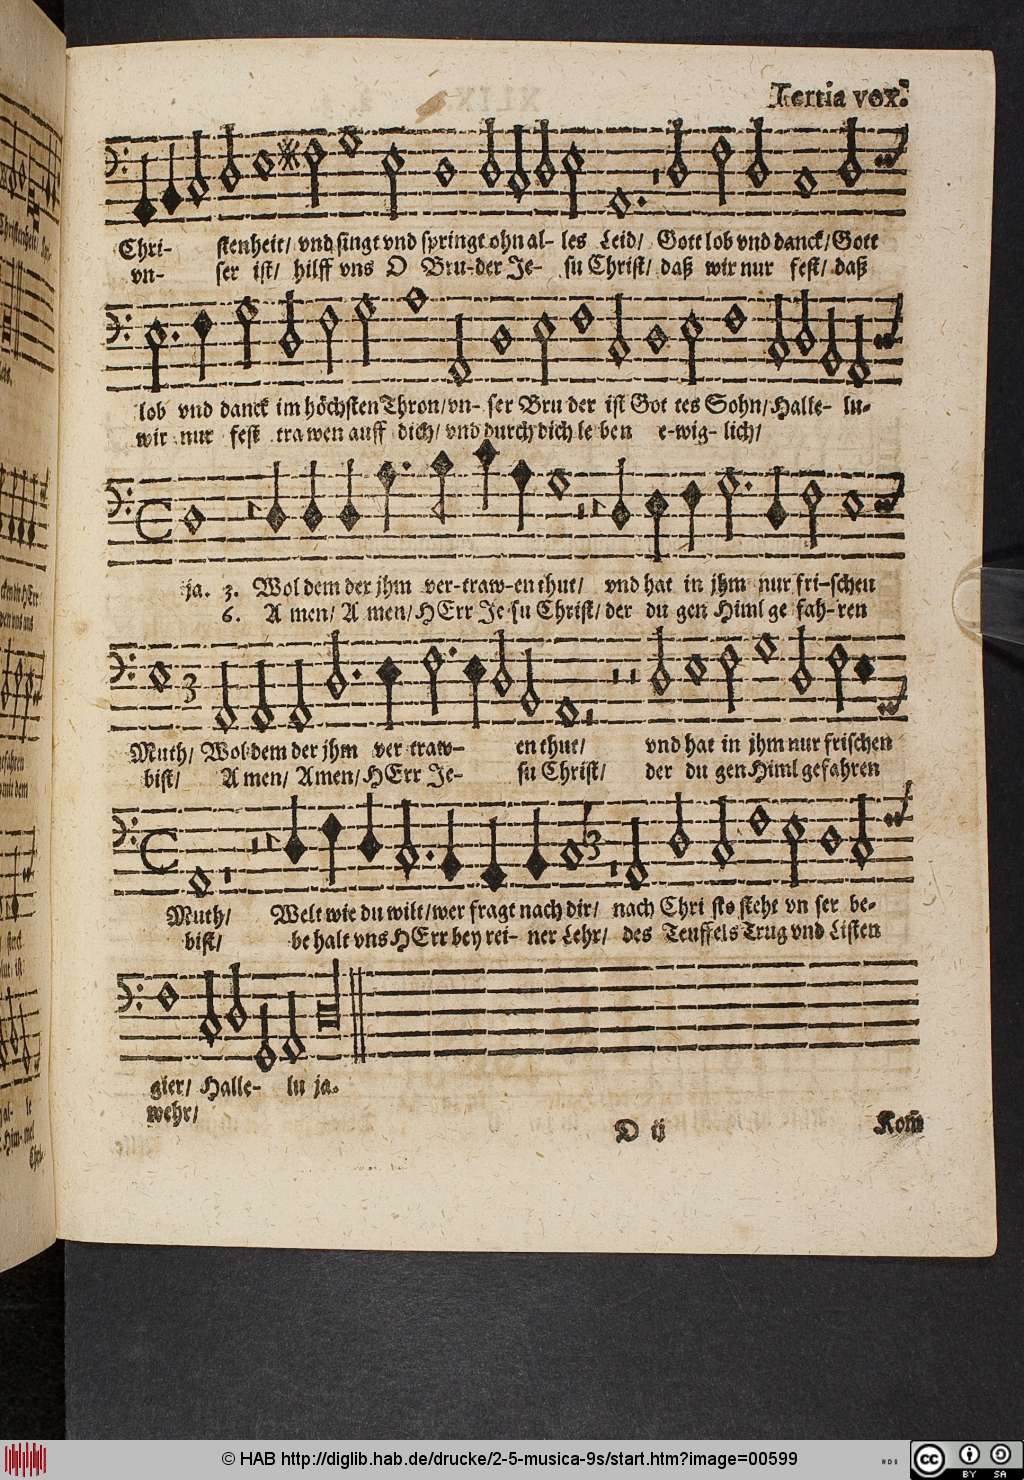 Tertia vox.
Chri- stenheit/ vnd singt vnd springt ohn al- les Leid/ Gott lob vnd danck/ Gott
vn- ser ist/ hilff vns O Bru-der Je- su Christ/ daß wir nur fest/ daß
lob vnd danck im höchsten Thron/ vn- ser Bru der ist Got tes Sohn/ Halle- lu-
wir nur fest tra wen auff dich/ vnd durch dich le ben e-wig- lich/
ja. 3. Wol dem der jhm ver-traw-en thut/ vnd hat in jhm nur fri-schen
6. A men/ A men/ HErr Je su Christ/ der du gen Himl ge fah-ren
3
Muth/ Wol dem der jhm ver traw- en thut/ vnd hat in jhm nur frischen
bist/ A men/ Amen/ HErr Je- su Christ/ der du gen Himl gefahren
3
Muth/ Welt wie du wilt/ wer fragt nach dir/ nach Chri sto steht vn ser be-
bist/ be halt vns HErr bey rei- ner Lehr/ des Teuffels Trug vnd Listen
gier/ Halle- lu ja.
wehr/
D ij Kom̃
© HAB http://diglib.hab.de/drucke/2-5-musica-9s/start.htm?image=00599
cc BY SA